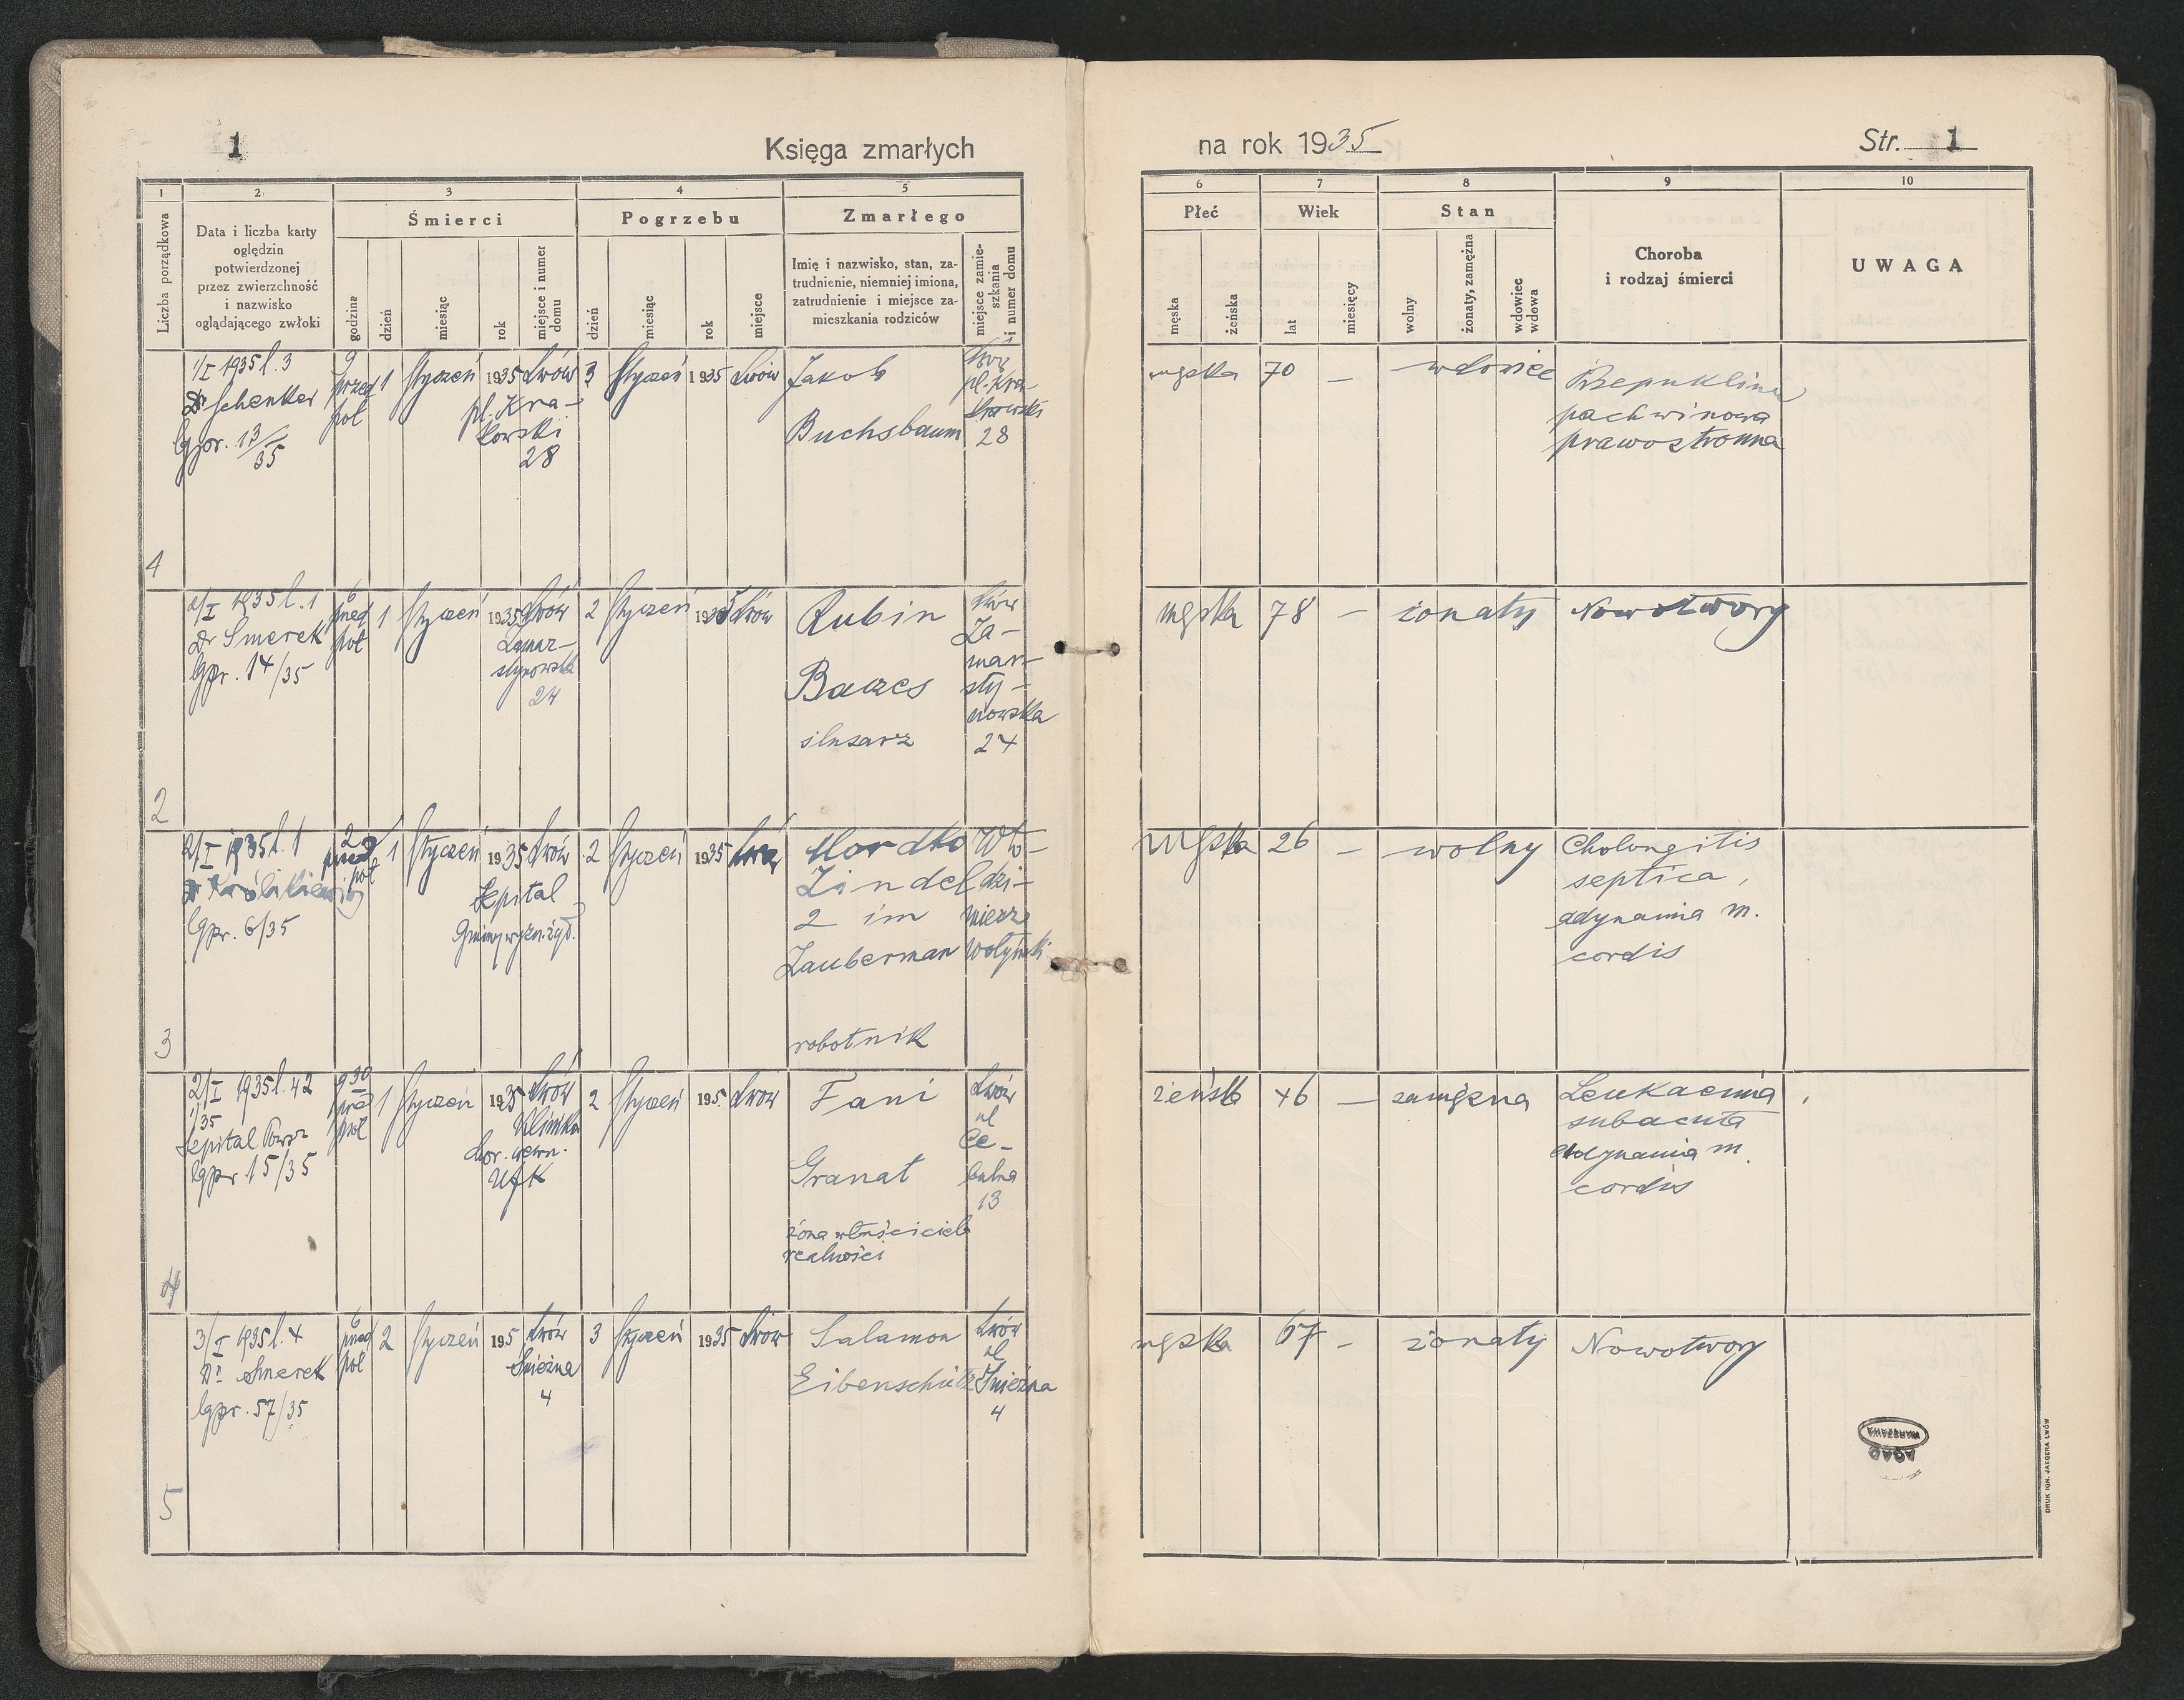 1
Księga zmarłych
na rok 1935
Str. 1
1 2 3 4 5
6 7 8 9 10
Liczba porządkowa
Data i liczba karty
oględzin
potwierdzonej
przez zwierzchność
i nazwisko
oglądającego zwłoki
Śmierci
godzina
dzień
miesiąc
rok
miejsce i numer
domu
Pogrzebu
dzień
miesiąc
rok
miejsce
Zmarłego
Imię i nazwisko, stan, za-
trudnienie, niemniej imiona,
zatrudnienie i miejsce za-
mieszkania rodziców
miejsce zamie-
szkania
i numer domu
Płeć
męska
żeńska
Wiek
lat
miesięcy
Stan
wolny
żonaty, zamężna
wdowiec
wdowa
Choroba
i rodzaj śmierci
UWAGA
1
1/I 1935 l. 3
Dr Schenker
lgpr. 13/35
9
przed
poł
1
Styczeń
1935
Lwów
pl. Kra-
kowski
28
3
Styczeń
1935
Lwów
Jakob
Buchsbaum
Lwów
pl. Kra-
kowski
28
męska
70
—
wdowiec
Przepuklina
pachwinowa
prawostronna
2
2/I 1935 l. 1
Dr Smerek
lgpr. 14/35
6
przed
poł
1
Styczeń
1935
Lwów
Zamar-
stynowska
24
2
Styczeń
1935
Lwów
Rubin
Baczes
ślusarz
Lwów
Za-
mar-
sty-
nowska
24
męska
78
—
żonaty
Nowotwory
3
2/I 1935 l. 1
Dr Królikiewicz
lgpr. 6/35
2
przed
poł
1
Styczeń
1935
Lwów
Szpital
Gminy wyzn. żyd.
2
Styczeń
1935
Lwów
Mordko
Zindel
2 im
Zauberman
robotnik
Wło-
dzi-
mierz
Wołyński
męska
26
—
wolny
Cholangitis
septica,
adynamia m.
cordis
4
2/I 1935 l. 42
35
Szpital Powsz
lgpr 15/35
9 30
przed
poł
1
Styczeń
1935
Lwów
Klinika
chor. wewn.
UJK
2
Styczeń
195
Lwow
Fani
Granat
żona właściciela
realności
Lwów
ul
Ce-
bulna
13
żeńska
46
—
zamężna
Leukaemia
subacuta
adynamia m.
cordis
5
3/I 1935 l. 4
Dr Smerek
lgpr. 57/35
6
przed
poł
2
Styczeń
195
Lwów
Śnieżna
4
3
Styczeń
1935
Lwów
Salamon
Eibenschütz
Lwów
ul
Śnieżna
4
męska
67
—
żonaty
Nowotwory
AGAD
WARSZAWA
DRUK IGN. JAEGERA LWÓW